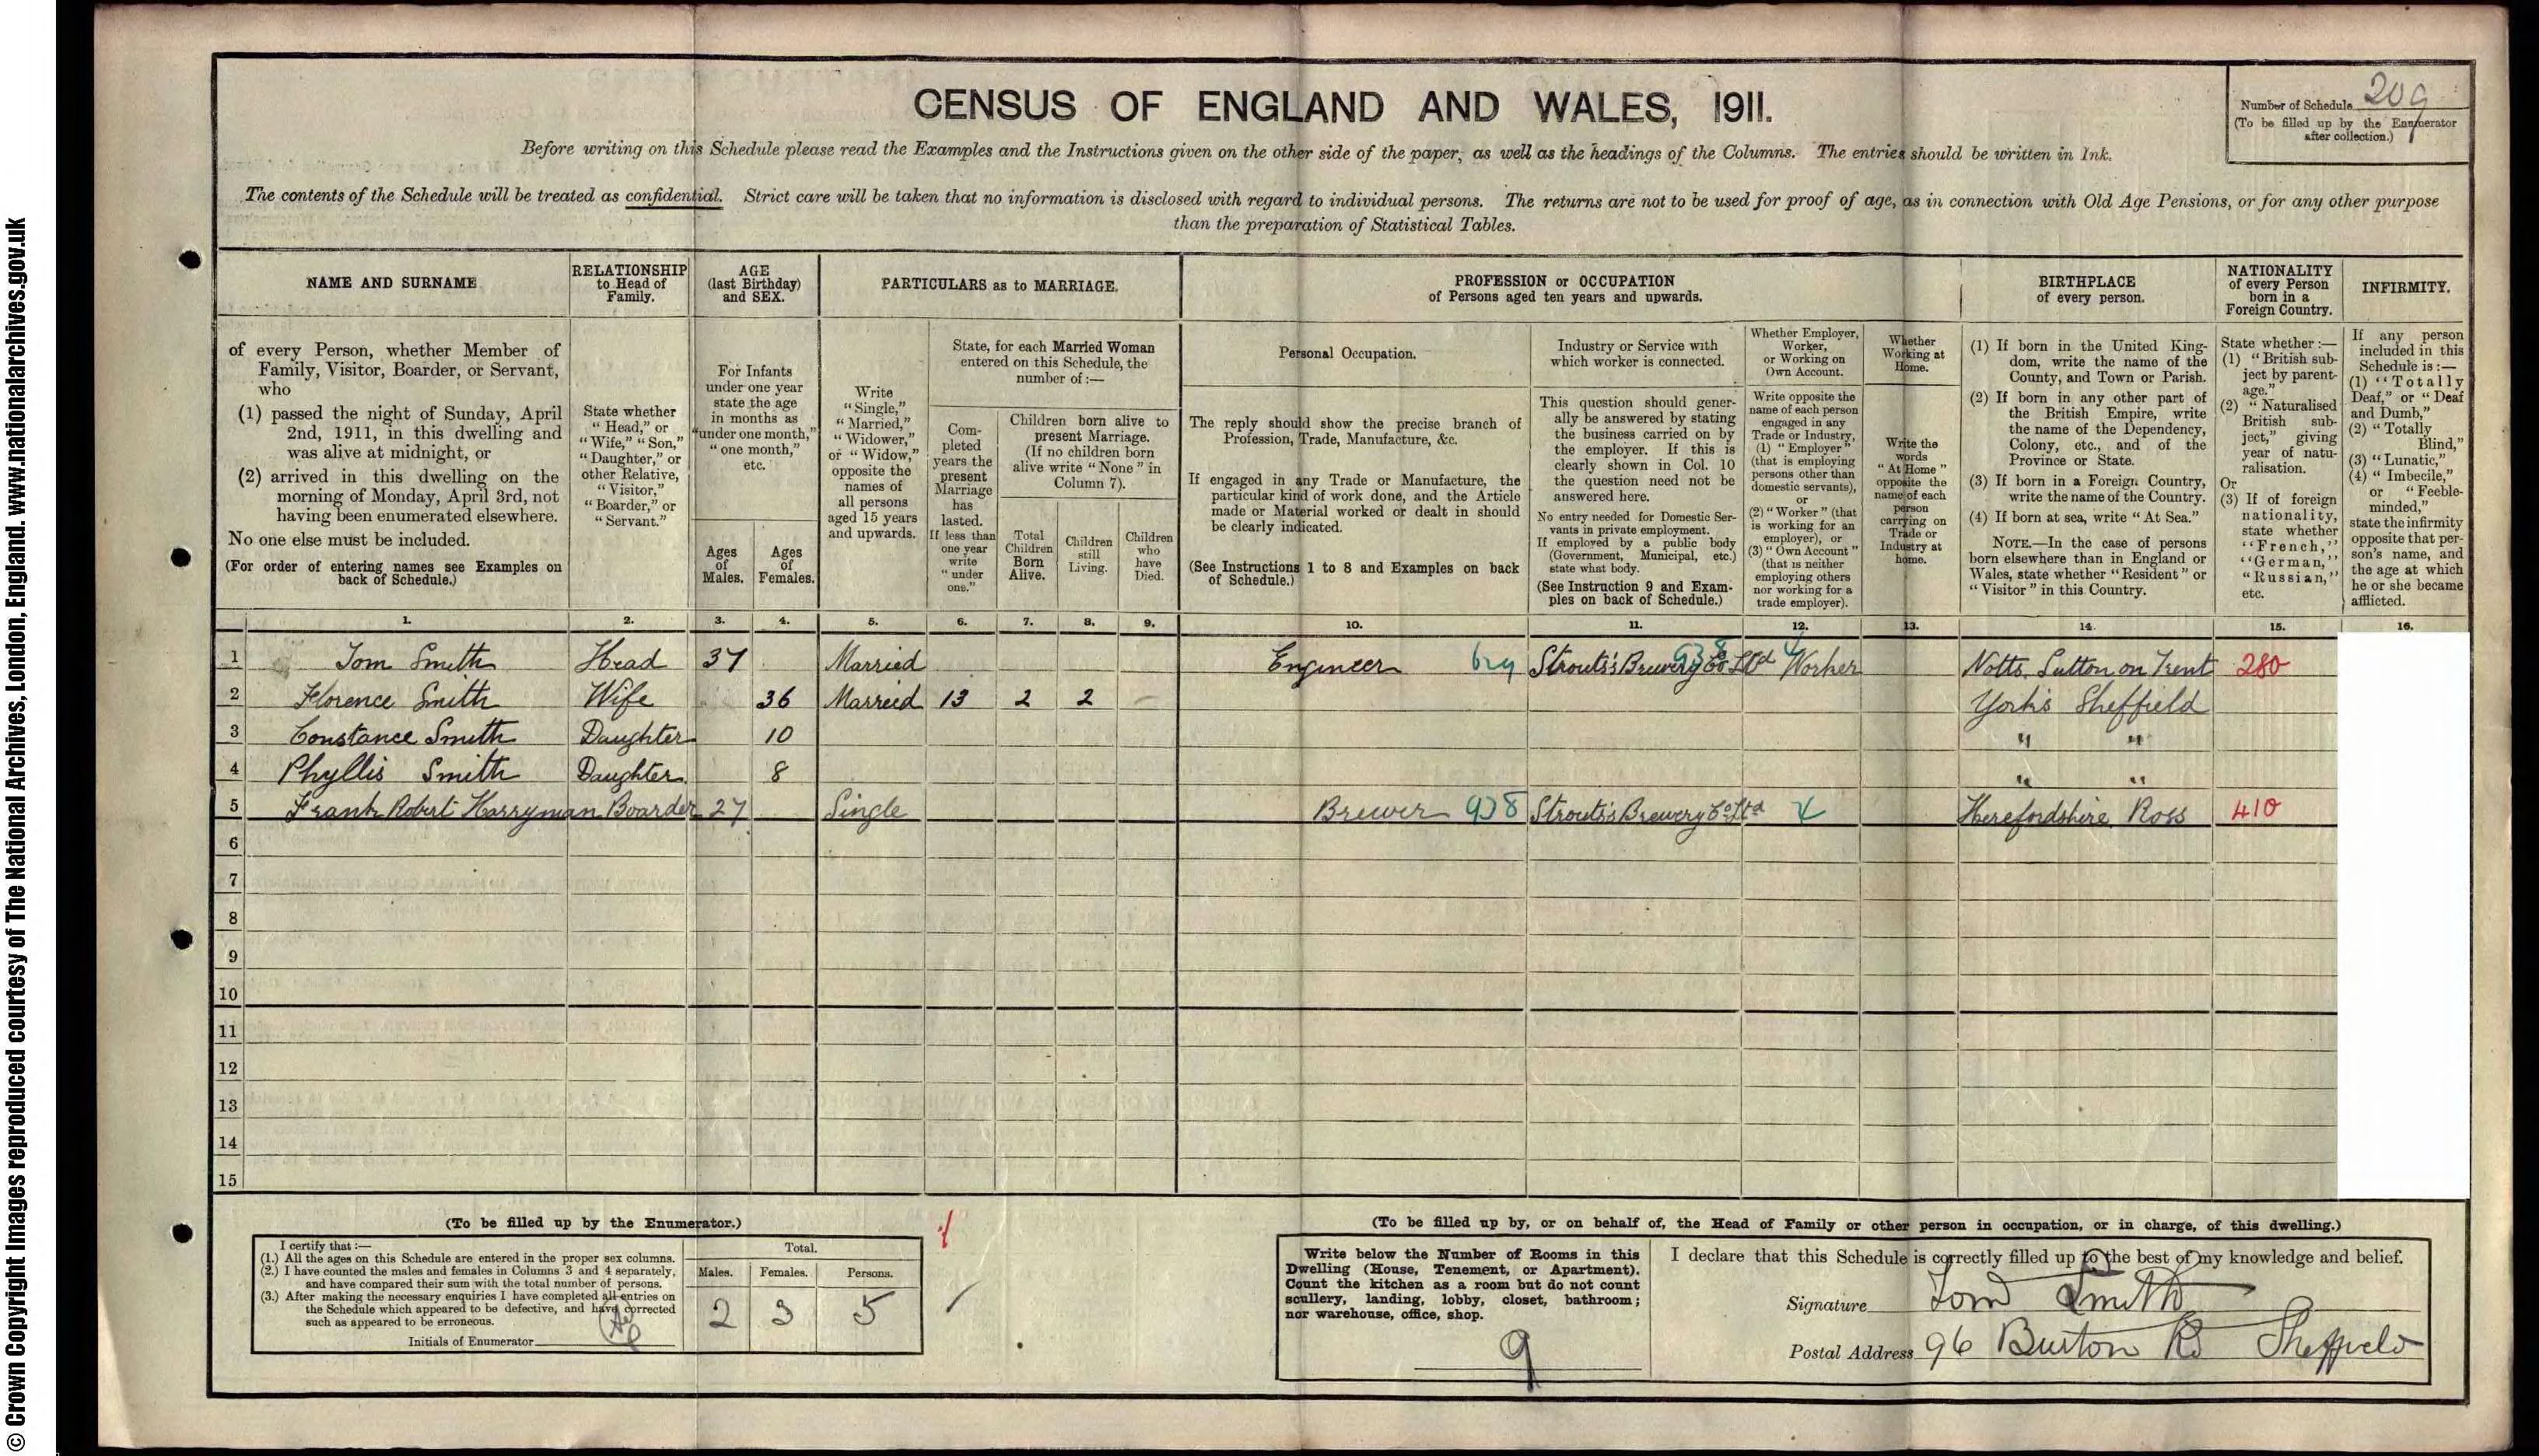 © Crown Copyright Images reproduced courtesy of The National Archives, London, England. www.nationalarchives.gov.uk
CENSUS OF ENGLAND AND WALES, 1911.
Number of Schedule 209
(To be filled up by the Enumerator after collection.)
Before writing on this Schedule please read the Examples and the Instructions given on the other side of the paper, as well as the headings of the Columns. The entries should be written in Ink.
The contents of the Schedule will be treated as confidential. Strict care will be taken that no information is disclosed with regard to individual persons. The returns are not to be used for proof of age, as in connection with Old Age Pensions, or for any other purpose
than the preparation of Statistical Tables.
NAME AND SURNAME
of every Person, whether Member of
Family, Visitor, Boarder, or Servant,
who
(1) passed the night of Sunday, April
2nd, 1911, in this dwelling and
was alive at midnight, or
(2) arrived in this dwelling on the
morning of Monday, April 3rd, not
having been enumerated elsewhere.
No one else must be included.
(For order of entering names see Examples on
back of Schedule.)
RELATIONSHIP
to Head of
Family.
State whether
"Head," or
"Wife," "Son,"
"Daughter," or
other Relative,
"Visitor,"
"Boarder," or
"Servant."
AGE
(last Birthday)
and SEX.
For Infants
under one year
state the age
in months as
"under one month,"
"one month,"
etc.
Ages
of
Males.
Ages
of
Females.
PARTICULARS as to MARRIAGE.
Write
"Single,"
"Married,"
"Widower,"
or "Widow,"
opposite the
names of
all persons
aged 15 years
and upwards.
State, for each Married Woman
entered on this Schedule, the
number of:—
Com-
pleted
years the
present
Marriage
has
lasted.
If less than
one year
write
"under
one."
Children born alive to
present Marriage.
(If no children born
alive write "None" in
Column 7).
Total
Children
Born
Alive.
Children
still
Living.
Children
who
have
Died.
PROFESSION or OCCUPATION
of Persons aged ten years and upwards.
Personal Occupation.
The reply should show the precise branch of
Profession, Trade, Manufacture, &c.
If engaged in any Trade or Manufacture, the
particular kind of work done, and the Article
made or Material worked or dealt in should
be clearly indicated.
(See Instructions 1 to 8 and Examples on back
of Schedule.)
Industry or Service with
which worker is connected.
This question should gener-
ally be answered by stating
the business carried on by
the employer. If this is
clearly shown in Col. 10
the question need not be
answered here.
No entry needed for Domestic Ser-
vants in private employment.
If employed by a public body
(Government, Municipal, etc.)
state what body.
(See Instruction 9 and Exam-
ples on back of Schedule.)
Whether Employer,
Worker,
or Working on
Own Account.
Write opposite the
name of each person
engaged in any
Trade or Industry,
(1) "Employer"
(that is employing
persons other than
domestic servants),
or
(2) "Worker" (that
is working for an
employer), or
(3) "Own Account"
(that is neither
employing others
nor working for a
trade employer).
Whether
Working at
Home.
Write the
words
"At Home"
opposite the
name of each
person
carrying on
Trade or
Industry at
home.
BIRTHPLACE
of every person.
(1) If born in the United King-
dom, write the name of the
County, and Town or Parish.
(2) If born in any other part of
the British Empire, write
the name of the Dependency,
Colony, etc., and of the
Province or State.
(3) If born in a Foreign Country,
write the name of the Country.
(4) If born at sea, write "At Sea."
NOTE.—In the case of persons
born elsewhere than in England or
Wales, state whether "Resident" or
"Visitor" in this Country.
NATIONALITY
of every Person
born in a
Foreign Country.
State whether:—
(1) "British sub-
ject by parent-
age."
(2) "Naturalised
British sub-
ject," giving
year of natu-
ralisation.
Or
(3) If of foreign
nationality,
state whether
"French,"
"German,"
"Russian,"
etc.
INFIRMITY.
If any person
included in this
Schedule is:—
(1) "Totally
Deaf," or "Deaf
and Dumb,"
(2) "Totally
Blind,"
(3) "Lunatic,"
(4) "Imbecile,"
or "Feeble-
minded,"
state the infirmity
opposite that per-
son's name, and
the age at which
he or she became
afflicted.
1. 2. 3. 4. 5. 6. 7. 8. 9. 10. 11. 12. 13. 14. 15. 16.
1 Tom Smith Head 37 Married Engineer 629 Strouts's Brewery Co Ltd 938 Worker 4 Notts. Sutton on Trent 280
2 Florence Smith Wife 36 Married 13 2 2 – Yorks Sheffield
3 Constance Smith Daughter 10 " "
4 Phyllis Smith Daughter 8 " "
5 Frank Robert Harryman Boarder 27 Single Brewer 938 Strouts's Brewery Co Ltd 4 Herefordshire Ross 410
6
7
8
9
10
11
12
13
14
15
(To be filled up by the Enumerator.)
I certify that:—
(1.) All the ages on this Schedule are entered in the proper sex columns.
(2.) I have counted the males and females in Columns 3 and 4 separately,
and have compared their sum with the total number of persons.
(3.) After making the necessary enquiries I have completed all entries on
the Schedule which appeared to be defective, and have corrected
such as appeared to be erroneous.
Initials of Enumerator
Total.
Males. Females. Persons.
2 3 5
(To be filled up by, or on behalf of, the Head of Family or other person in occupation, or in charge, of this dwelling.)
Write below the Number of Rooms in this
Dwelling (House, Tenement, or Apartment).
Count the kitchen as a room but do not count
scullery, landing, lobby, closet, bathroom;
nor warehouse, office, shop.
9
I declare that this Schedule is correctly filled up to the best of my knowledge and belief.
Signature Tom Smith
Postal Address 96 Burton Rd Sheffield